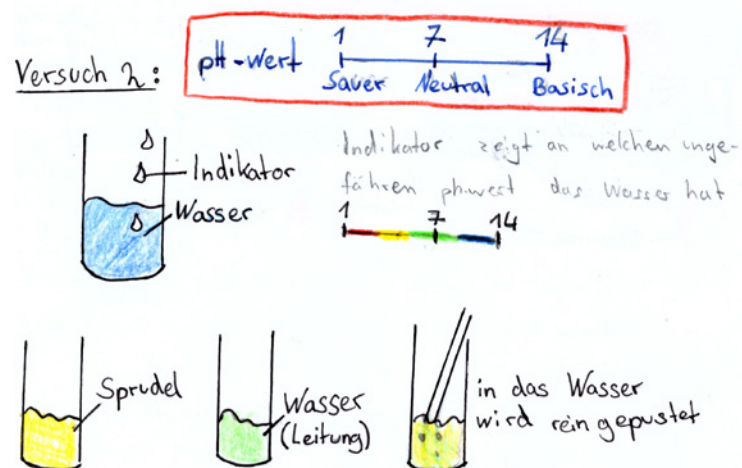 Versuch 2:
pH-Wert
1 7 14
Sauer Neutral Basisch
Indikator
Wasser
Indikator zeigt an welchen unge-
fähren phwert das Wasser hat
1 7 14
Sprudel
Wasser
(Leitung)
in das Wasser
wird reingepustet